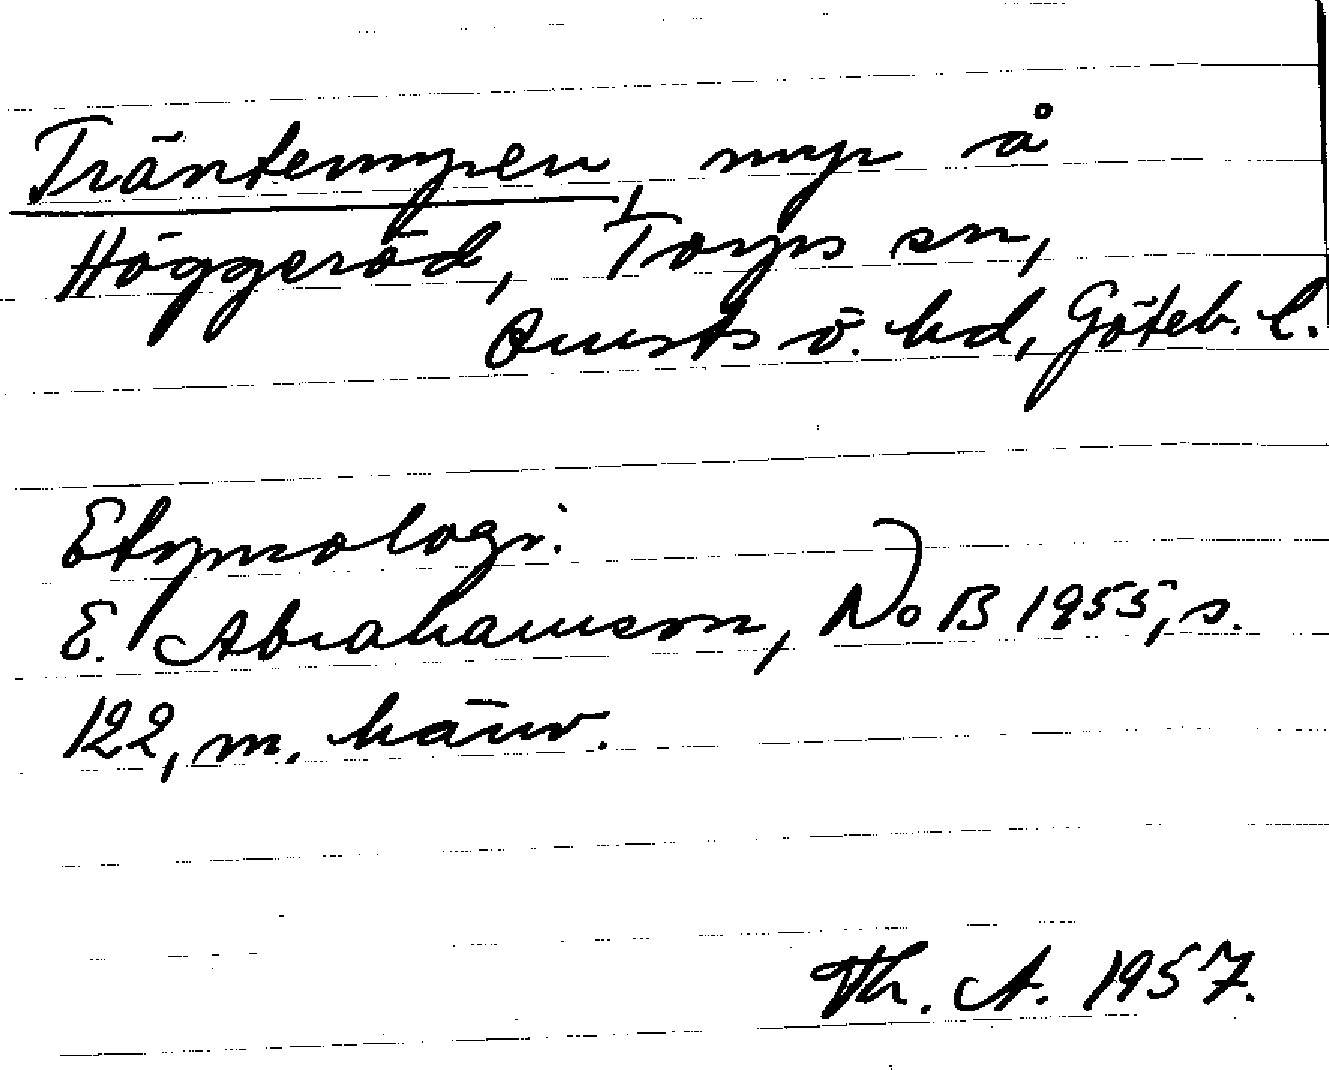 Träntemyren, myr å
Höggeröd, Torps sn,
Orusts ö. hd, Göteb. l.
Etymologi:
E. Abrahamson, NoB 1955, s.
122, m. hänv.
Th. A. 1957.